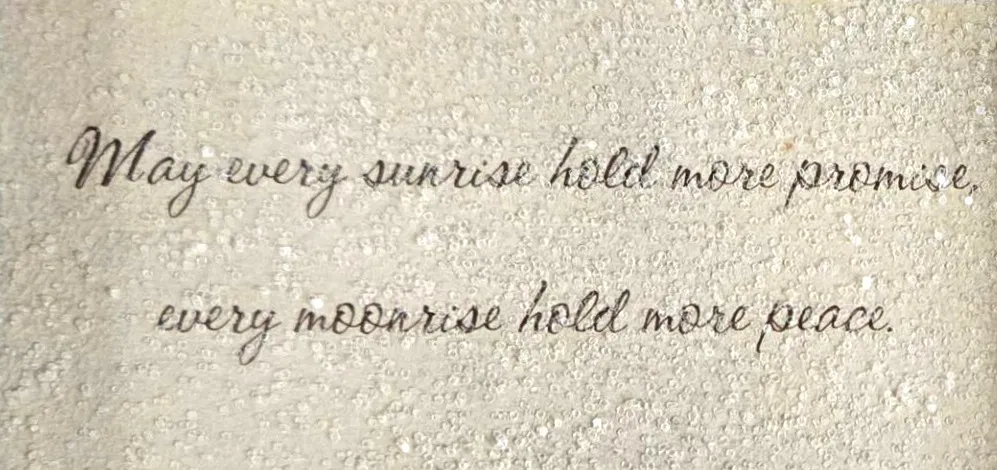 May every sunrise hold more promise,
every moonrise hold more peace.